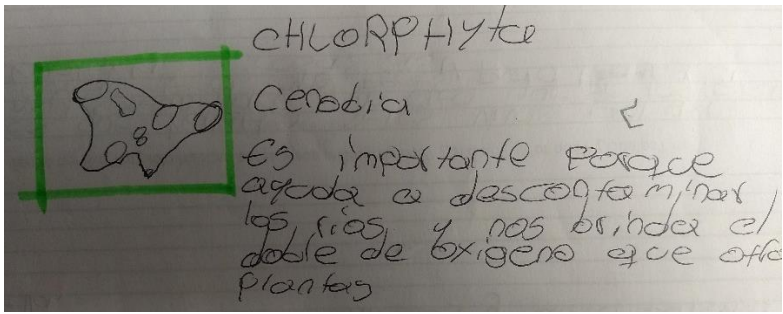 CHLORPHYta
Cenobia
Es importante porque
ayuda a descontaminar
los rios, y nos brinda el
doble de oxigeno que otra
plantas